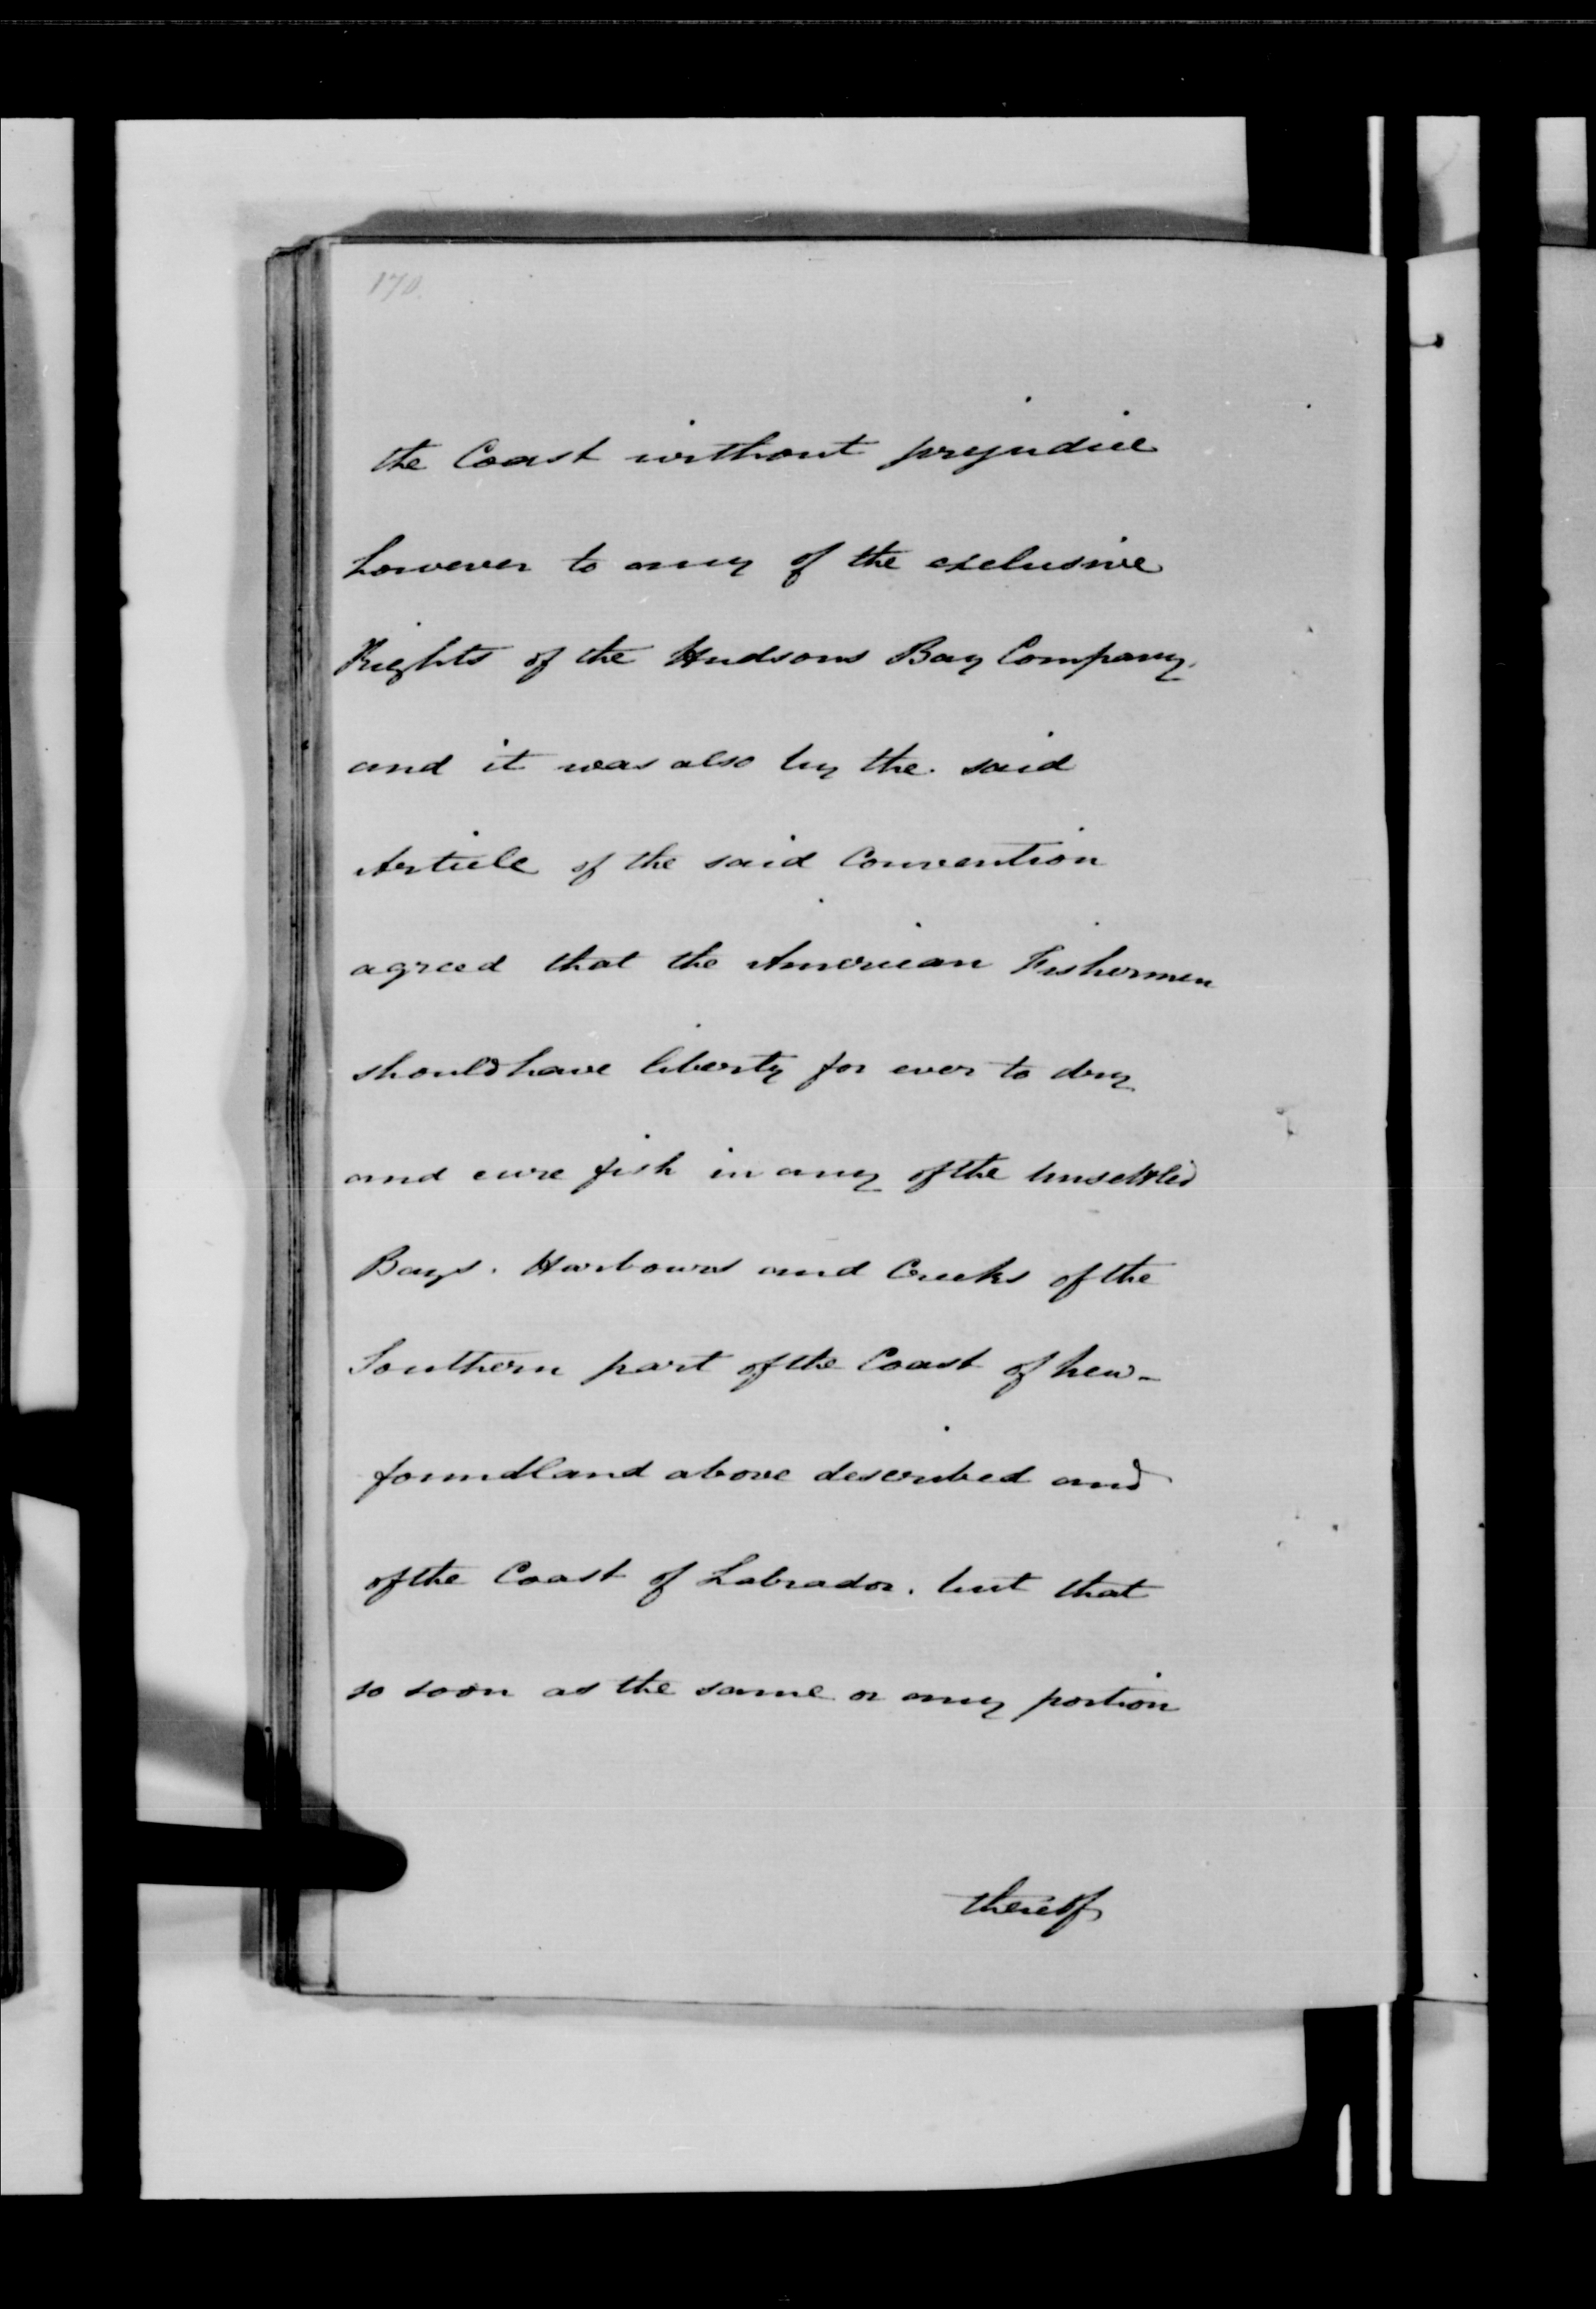 170.
the Coast without prejudice
however to any of the exclusive
Rights of the Hudsons Bay Company.
and it was also by the said
Article of the said Convention
agreed that the American Fishermen
should have liberty for ever to dry
and cure fish in any of the unsettled
Bays. Harbours and Creeks of the
Southern part of the Coast of New-
foundland above described and
of the Coast of Labrador. but that
so soon as the same or any portion
thereof